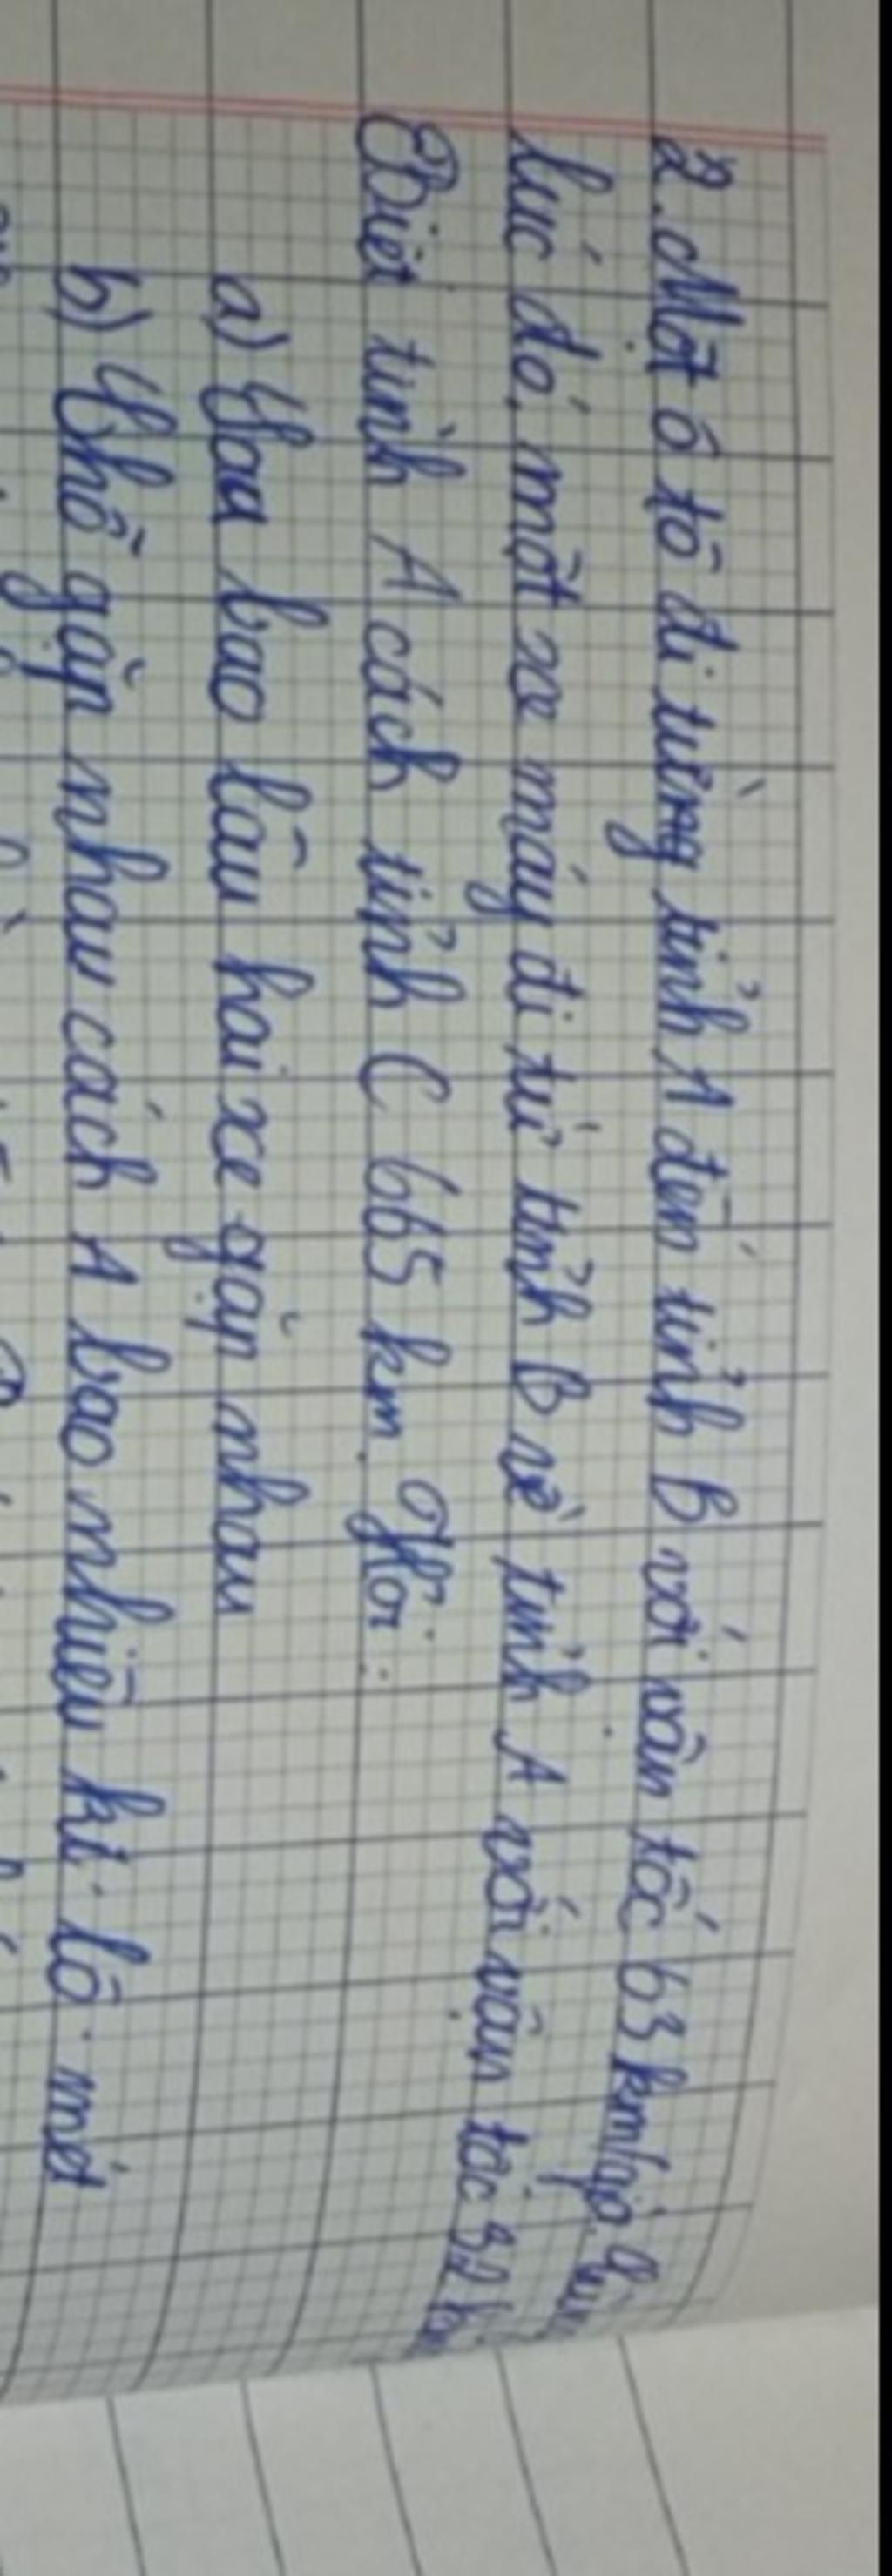 2. Một ô tô đi từng tỉnh A đến tỉnh B với vận tốc 63 km/giờ. Cùng
lúc đó, một xe máy đi từ tỉnh B về tỉnh A với vận tốc 32
Biết tỉnh A cách tỉnh C 665 km. Hỏi:
a) Sau bao lâu hai xe gặp nhau
b) Chỗ gặp nhau cách A bao nhiêu ki-lô-mét